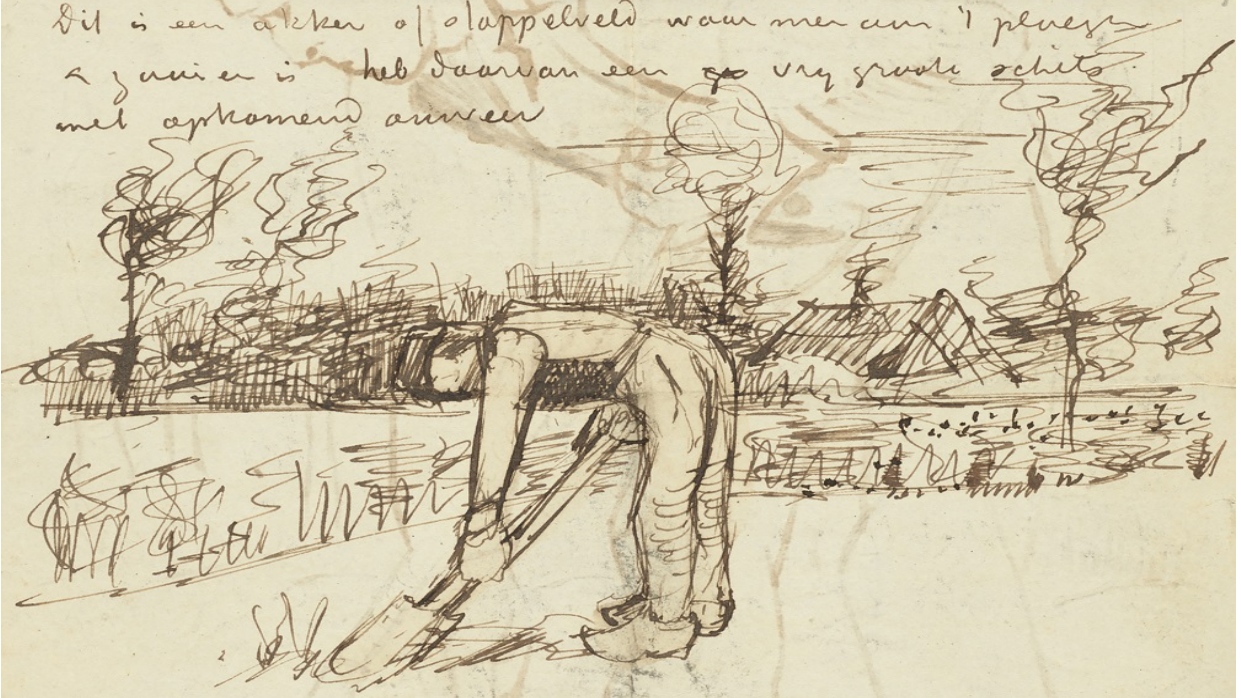 Dit is een akker of stoppelveld waar men aan 't ploegen
& zaaien is heb daarvan een vrij groote schets
met opkomend onweer